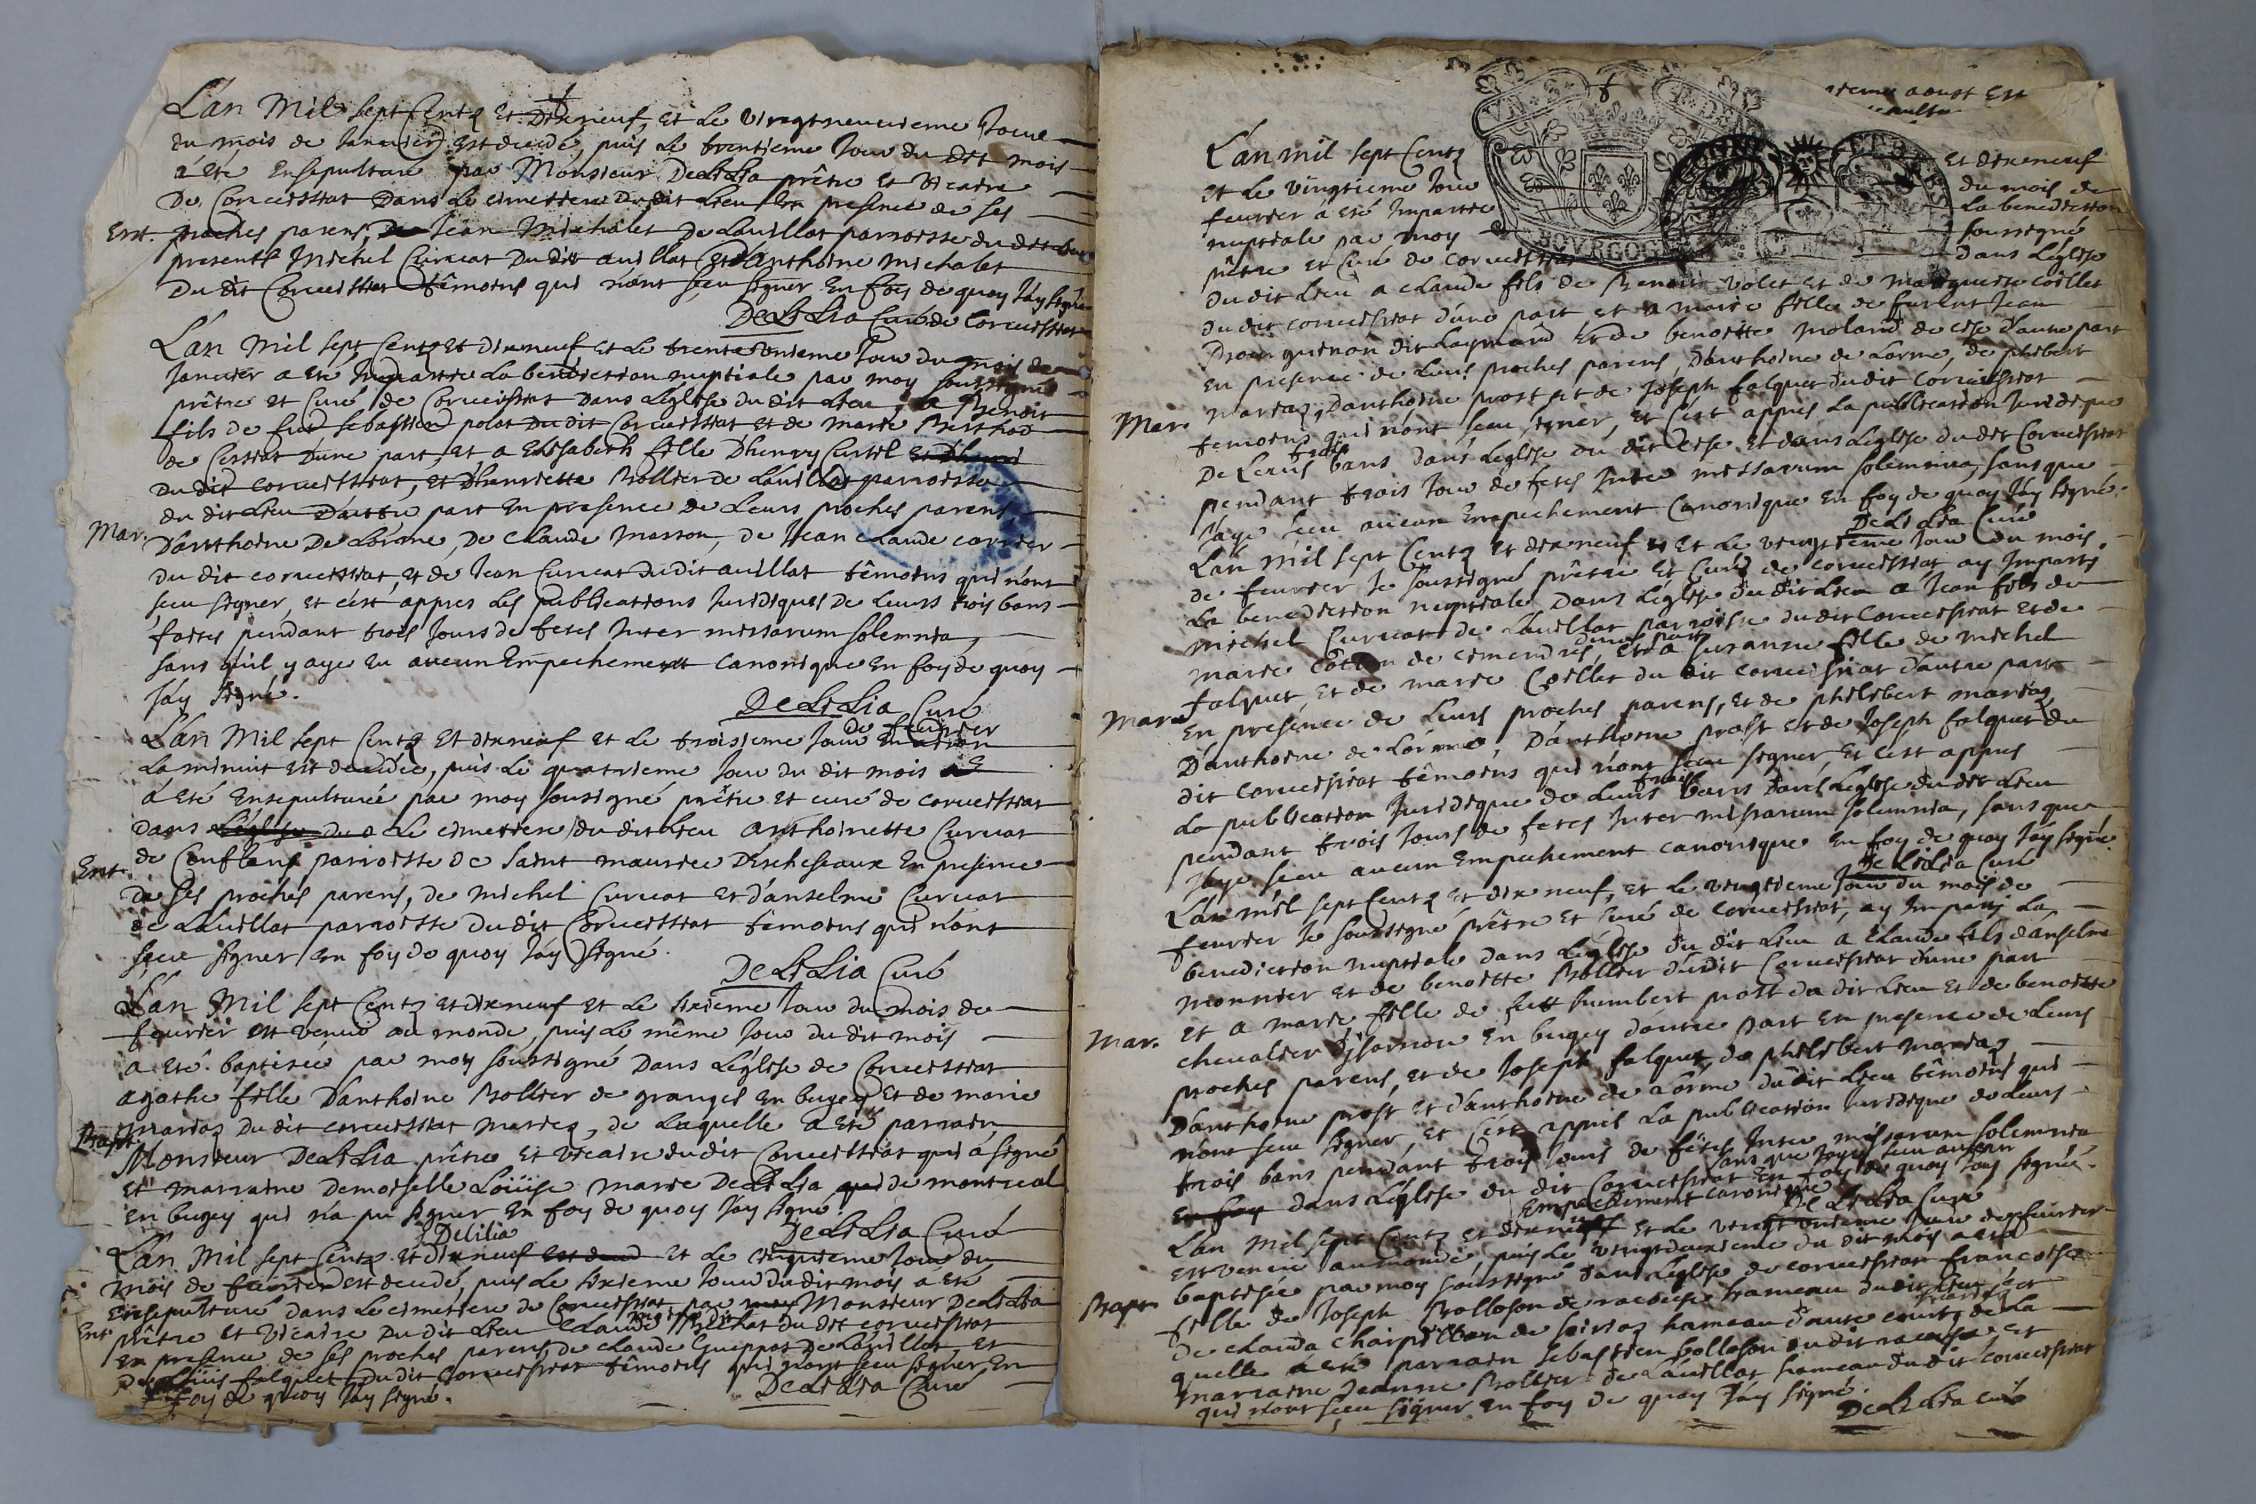 L'an Mil sept Centz Et Dixneuf, Et Le vingtneuvieme Jour
Du mois de Janvier Est decedé, puis Le trentieme Jour du dit mois
à Eté Ensepulturé par Monsieur DeLiLia prêtre Et Vicaire
De Corveissiat Dans Le cimetiere Du dit Lieu En presence de ses
Ent. proches parens, Jean Michalet De Lavillat parroisse du dit lieu
presentz Michel Curvat Du dit avillat Et d'anthoine michalet
Du dit Corveissiat têmoins qui n'ont sçeu signer En foy de quoy J'ay signé
DeLiLia Curé de Corveissiat
L'an Mil sept Centz Et Dixneuf Et Le trente unieme Jour du mois de
Janvier a eté Impartie La benediction nuptiale par moy soussigné
prêtre et Curé de Corveissiat Dans L'église du dit Lieu, a Benoit
fils de feu sebastien polat Du dit Corveissiat et de marie Berthod
de Cessiat D'une part, et a Elisabeth fille D'henry Curtil
Du dit corveissiat, et D'henriette Bollier de Lavillat parroisse
du dit Lieu D'autre part En presence de Leurs proches parens,
Mar. D'anthoine De Lorme, De Claude masson, de Jean claude carrier
Du dit corveissiat, et de Jean Curvat du dit avillat têmoins qui n'ont
sçeu signer, et c'est appres Les publications Juridiques De Leurs trois bans
faites pendant trois Jours de fetes Inter missarum solemnia,
sans qu'il y aye Eu aucun Empechement Canonique En foy de quoy
J'ay signé.
DeLiLia Curé
de fevrier
L'an Mil sept Centz Et dixneuf et Le troisieme Jour
La minuit est decedée, puis Le quatrieme Jour du dit mois
à Eté Ensepulturée par moy sousigné prêtre et curé de corveissiat
dans Le cimetiere du dit Lieu anthoinette Curvat
Ent. de Conflans parroisse de saint maurice D'escheseaux En presence
De ses proches parens, de michel Curvat et d'anselme Curvat
de Lavillat parroisse Du dit Corveissiat têmoins qui n'ont
sçeu signer En foy de quoy J'ay signé.
DeLiLia Curé
L'an Mil sept Centz et dixneuf et Le sixieme Jour du mois de
fevrier est venue au monde, puis Le même Jour du dit mois
a eté baptisée par moy soussigné Dans L'église de Corveissiat
agathe fille D'anthoine Bollier de granges En bugey Et de marie
Bapt. mariaz Du dit corveissiat mariez, de Laquelle a eté parrain
Monsieur DeLiLia prêtre Et vicaire du dit Corveissiat qui à signé
Et marraine Demoiselle Loüise marie DeLiLia de montreal
En bugey qui n'a pu signer En foy de quoy J'ay signé
Delilia DeLiLia Curé
L'an Mil sept Centz et Dixneuf Et Le cinquieme Jour du
mois de fevrier est decedé, puis Le sixieme Jour du dit mois a eté
Ensepulturé dans Le cimetiere de Corveissiat, par Monsieur DeLiLia
Ent. prêtre et vicaire Du dit Lieu Claude Michat du dit corveissiat
En presence de ses proches parens de claude Guippot De Lavillat, et
De Loüis falquet Du dit Corveissiat têmoins qui n'ont sçeu signer En
foy de quoy J'ay signé.
DeLiLia Curé
aoust En
BOVRGOGNE
L'an mil sept Centz Et dixneuf
et Le vingtieme Jour du mois de
fevrier à eté Impartie La benediction
nuptiale par moy soussigné
prêtre et Curé de Corveissiat dans L'église
Du dit Lieu a claude fils de Benoit volet et de marguerite Coillet
Du dit corveissiat d'une part et a marie fille de furent Jean
dit Laymard Et de benoitte moland de cise D'autre part
En presence de Leurs proches parens, D'anthoine de Lorme, de philibert
Mar. mariaz, D'anthoine prost et de Joseph falquet du dit Corveissiat
temoins qui n'ont sceu signer, et C'est appres La publication Juridique
De Leurs trois bans dans L'église du dit cise Et dans L'église du dit Corveissiat
pendant trois Jour de fetes Inter missarum solemnia, sans que
J'aye sceu aucun Empechement Canonique En foy de quoy J'ay signé.
DeLiLia Curé
L'an mil sept Centz Et dixneuf Et Le vingtieme Jour Du mois
de fevrier Je soussigné prêtre Et Curé de corveissiat ay Imparti
La benediction nuptiale Dans L'église du dit Lieu a Jean fils de
michel Curvat de Lavillat parroisse du dit Corveissiat et de
marie Cotton de cimandres d'une part, Et a Suzanne fille de michel
falquet, Et de marie Coillet du dit corveissiat d'autre part
Mar. En presence de Leurs proches parens, Et de philibert mariaz
D'anthoine de Lorme, D'anthoine prost et de Joseph falquet du
dit Corveissiat têmoins qui n'ont sceu signer, Et c'est appres
La publication Juridique de Leurs trois bans Dans L'église du dit Lieu
pendant trois Jours de fetes Inter missarum solemnia, sans que
J'aye sceu aucun Empechement canonique En foy de quoy J'ay signé
DeLiLia Curé
L'an mil sept Centz Et dixneuf, Et Le vingtieme Jour du mois de
fevrier Je soussigné prêtre Et Curé de corveissiat, ay Imparti La
benediction nuptiale dans L'église du dit Lieu a Claude fils d'anselme
monnier Et de benoitte Bollier du dit Corveissiat d'une part
Et a marie fille de feu humbert prost du dit Lieu Et de benoitte
Mar. chevalier En bugey d'autre part En presence de Leurs
proches parens, Et de Joseph falquet, de philibert mariaz
D'anthoine prost Et d'anthoine de Lorme du dit Lieu têmoins qui
n'ont sceu signer, Et C'est appres La publication Juridique de Leurs
trois bans pendant trois Jours de fêtes Inter missarum solemnia
dans L'église du dit Corveissiat sans que J'aye sceu aucun
Empechement canonique En foy de quoy J'ay signé.
DeLiLia Curé
L'an mil sept Centz Et dixneuf Et Le vingt unieme Jour de fevrier
Est venue au monde, puis Le vingtdeuxieme du dit mois a eté
baptisée par moy soussigné dans L'église de corveissiat francoise
Bapt. fille de Joseph Bolloson de racouse hameau du dit Lieu et
De Clauda Charpillion de Soiriaz hameau d'autre mariez de La
quelle a eté parrain sebastien bolloson du dit racouse et
marraine Jeanne Bollier de Lavillat hameau du dit corveissiat
qui n'ont sceu signer En foy de quoy J'ay signé.
DeLiLia curé